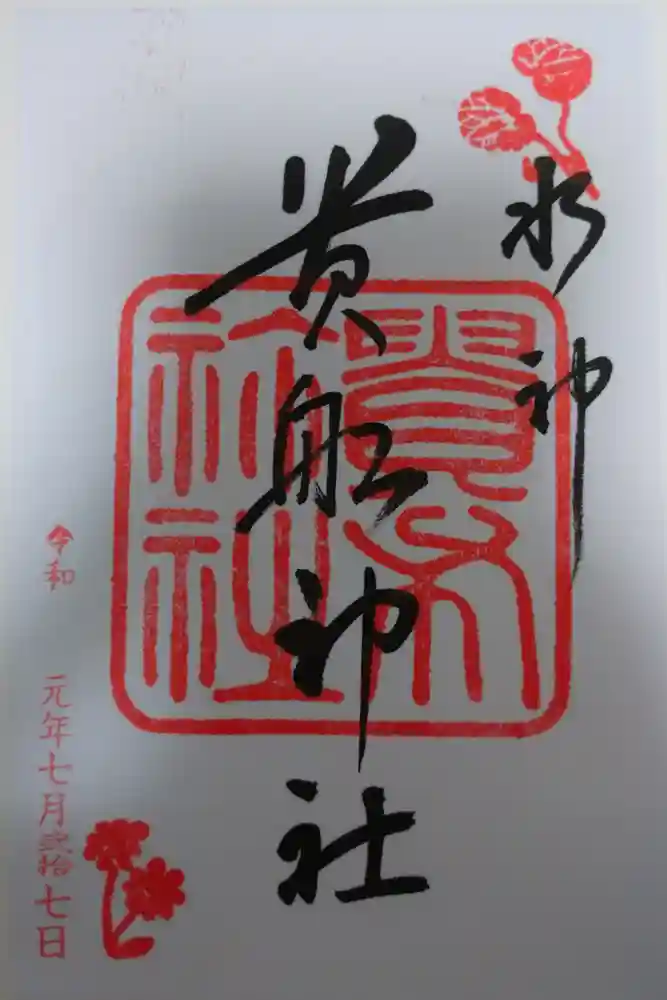 水神
貴船神社
貴布
祢社
令和 元年七月弐拾七日